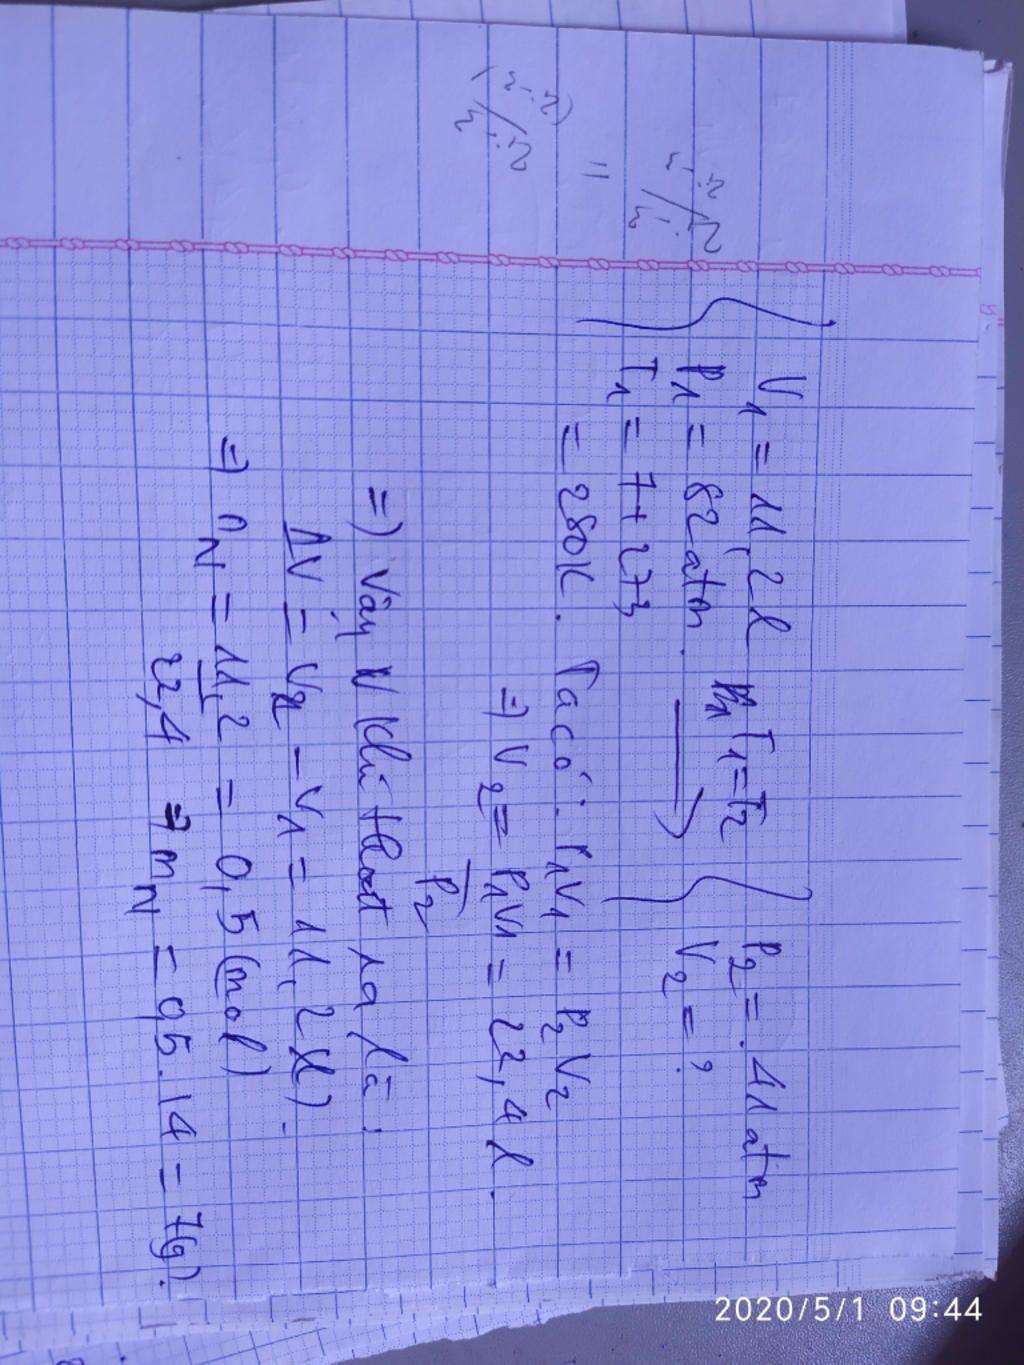 V₁ = 11,2 l
P₁ = 82 atm.
T₁ = 7 + 273
= 280K.
T₁ = T₂
P₂ = 41 atm
V₂ = ?
Ta có: P₁V₁ = P₂V₂
⇒ V₂ = P₁V₁/P₂ = 22,4 l.
⇒ Vậy N khí thoát ra là:
ΔV = V₂ - V₁ = 11,2 (l).
⇒ n_N = 11,2/22,4 = 0,5 (mol)
⇒ m_N = 0,5.14 = 7(g).
2020/5/1 09:44